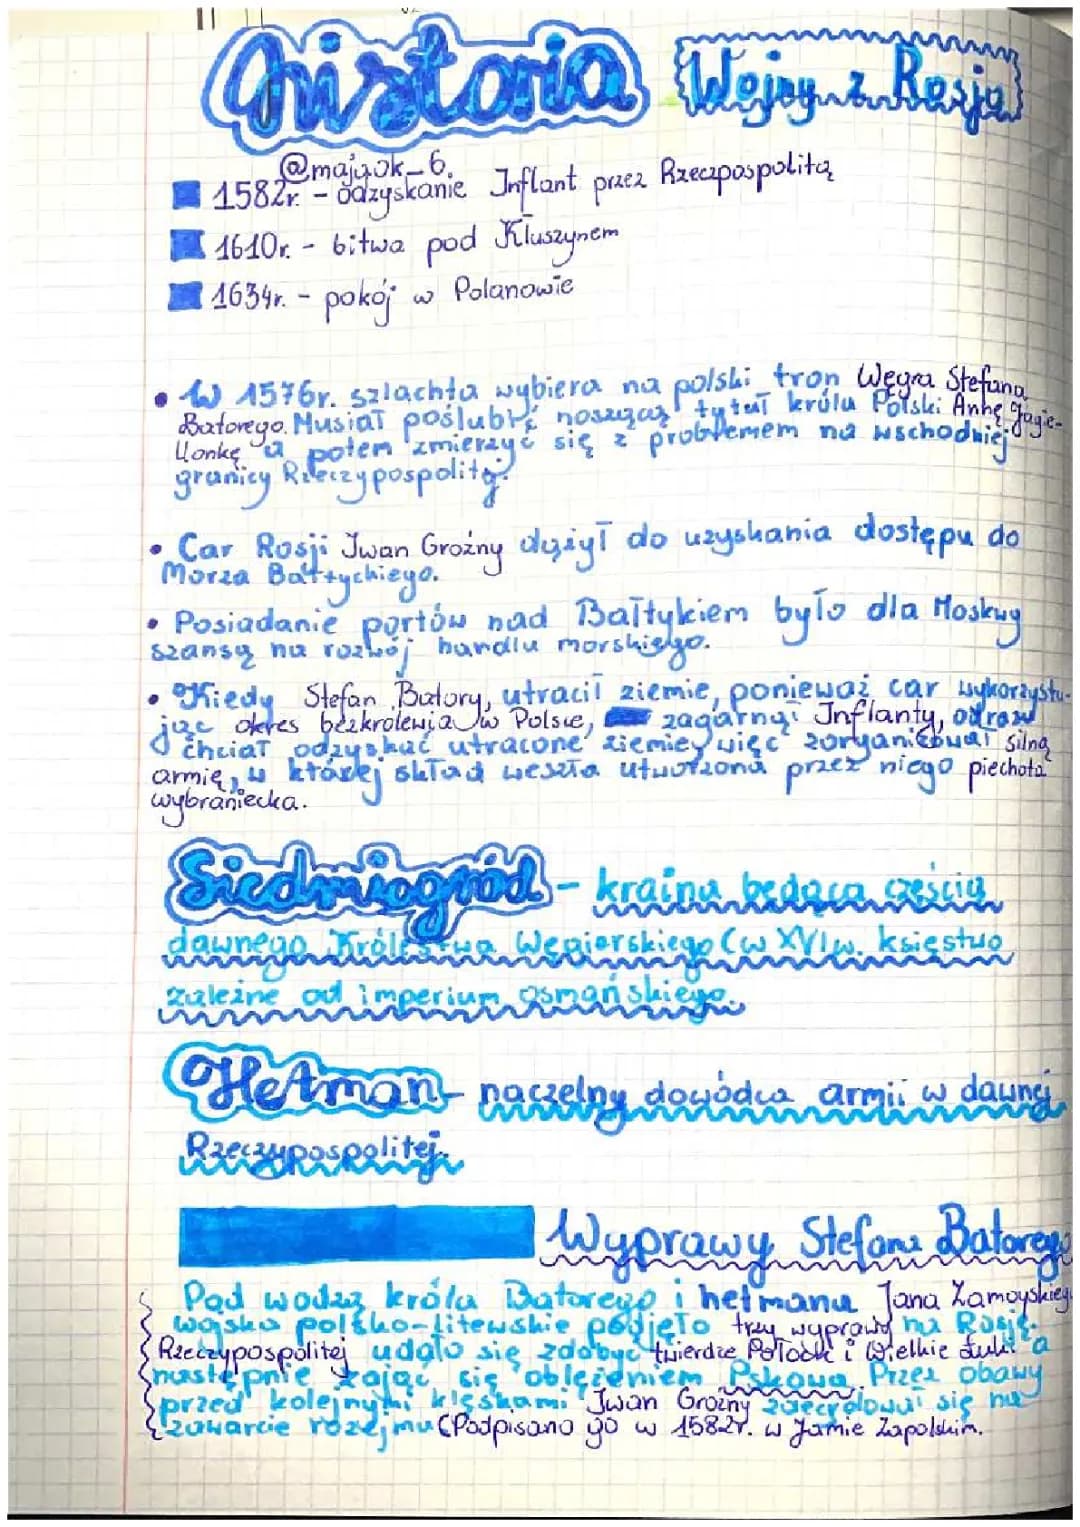 Historia Wojny z Rosją
@majqok_6.
1582r. - odzyskanie Inflant przez Rzeczpospolitą
1610r. - bitwa pod Kłuszynem
1634r. - pokój w Polanowie
• W 1576r. szlachta wybiera na polski tron Węgra Stefana
Batorego. Musiał poślubić noszącą tytuł króla Polski Annę Jagie-
llonkę a potem zmierzyć się z problemem na wschodniej
granicy Rzeczypospolitej.
• Car Rosji Iwan Groźny dążył do uzyskania dostępu do
Morza Bałtyckiego.
• Posiadanie portów nad Bałtykiem było dla Moskwy
szansą na rozwój handlu morskiego.
• Kiedy Stefan Batory, utracił ziemie, ponieważ car wykorzystu-
jąc okres bezkrólewia w Polsce, zagarnął Inflanty, odrazu
chciał odzyskać utracone ziemie, więc zorganizował silną
armię, w której skład weszła utworzona przez niego piechota
wybraniecka.
Siedmiogród - kraina będąca częścią
dawnego Królestwa Węgierskiego (w XVI w. księstwo
zależne od imperium osmańskiego.
Hetman - naczelny dowódca armii w dawnej
Rzeczypospolitej.
Wyprawy Stefana Batorego
Pod wodzą króla Batorego i hetmana Jana Zamoyskiego
wojsko polsko-litewskie podjęło trzy wyprawy na Rosję.
Rzeczypospolitej udało się zdobyć twierdze Połock i Wielkie Łuki a
następnie zająć się oblężeniem Pskowa Przez obawy
przed kolejnymi klęskami Iwan Groźny zdecydował się na
zawarcie rozejmu (Podpisano go w 1582r. w Jamie Zapolskim.